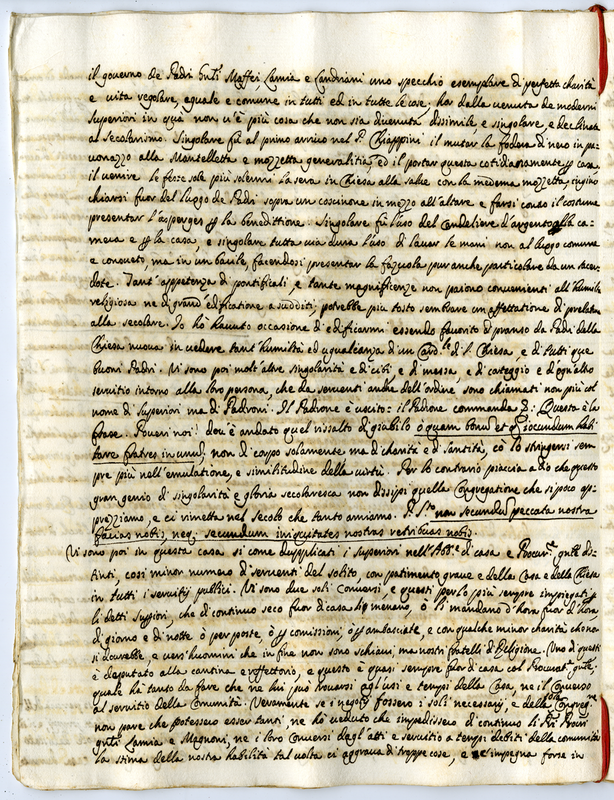 il governo de Padri Gnli Maffei, Lamia e Candriani uno specchio esemplare di perfetta charità
e vita regolare, eguale e comune in tutti ed in tutte le cose; ha dalla venuta de moderni
Superiori in quà non v'è più cosa che non sia divenuta dissimile e singolare, e declinata
al Secolarismo. Singolare fù al primo arrivo nel P. Chiappini il mutar la fodera di nero in pa-
vonazzo alla Mantelletta e mozzetta generalitia, ed il portar questa cotidianamente p casa
il venire le feste sole più solenni la sera in Chiesa alla salve con la medema mozzetta, ingino
chiarsi fuor del luogo de Padri sopra un coscinone in mezzo all'altare e farsi contro il costume
presentar l'asperges p la benedittione. Singolare fù l'uso del Candeliere d'argento p la ca-
mera e p la casa, e singolare tutta via dura l'uso di lavar le mani non al luogo comune
e consueto, ma in un bacile, facendosi presentar la fazuola pur anche particolare da un sacer
dote. Tant' appetenza di pontificali, e tante magnificenze non paiono convenienti all'humiltà
religiosa ne di grand' edificatione a sudditi; potrebbe più tosto sembrare un affettatione di prelatura
alla secolare. Io hò havuto occasione di edificarmi essendo favorito di pranso da Padri della
Chiesa nuova in vedere tant' humiltà ed ugualianza di un Card.le di S. Chiesa, e di tutti que
buoni Padri. Vi sono poi molt' altre singolarità e di cibi, e di mensa, e di corteggio e d'ogn'altro
servitio intorno alla loro persona, che da serventi anche dell'ordine sono chiamati non più col
nome di Superiori ma di Padroni. Il Padrone è uscito: il Padrone commanda &: Questa è la
frase. Poveri noi! dov'è andato quel rissalto di giubilo ò quam bonum et q. iocundum habi
tare fratres in unum; non di corpo solamente ma di charità e di santità, cò lo stringersi sem
pre più nell'emulatione, e similitudine della virtù. Per lo contrario piaccia a Dio che questo
gran genio di singolarità e gloria secolaresca non dissipi quella Congregatione che si poco ap-
prezziamo, e ci rimetta nel secolo che tanto amiamo. non secundum peccata nostra
facias nobis, neq. secundum iniquitates nostras retribuas nobis.
Vi sono poi in questa casa si come dupplicati i Superiori nell'Abb.e di casa e Procur.e gnle di-
stinti, così minor numero di serventi del solito, con patimento grave e della Casa e della Chiesa
in tutti i servitij publici. Vi sono due soli Conversi, e questi per lo più sempre impiegati p
li detti Superiori, che di continuo seco fuor di casa li menano, ò li mandano d'hora in hora,
di giorno e di notte ò per poste, ò p comissioni, ò p ambasciate, e con qualche minor charità che non
si dovrebbe, e vers' huomini che in fine non sono schiavi, ma nostri fratelli di Religione. Uno di questi
è deputato alla cantina e reffettorio, e questo è quasi sempre fuor di casa col Procurat.e gnle
quale hà tanto da fare che ne lui può trovarsi agl'usi e tempi della Casa, ne il Converso
al servitio della Comunità. Veramente se i negotij fossero i soli necessarij, e della sola Congreg.ne
non pare che potessero esser tanti, ne hò veduto che impedissero di continuo li P.ri Procur.
gnli Lamia e Magnoni, ne i loro Conversi dagl'atti e servitio a tempi debiti della comunità
la stima della nostra habilità tal volta ci aggrava di troppe cose, e c'impegna forse in